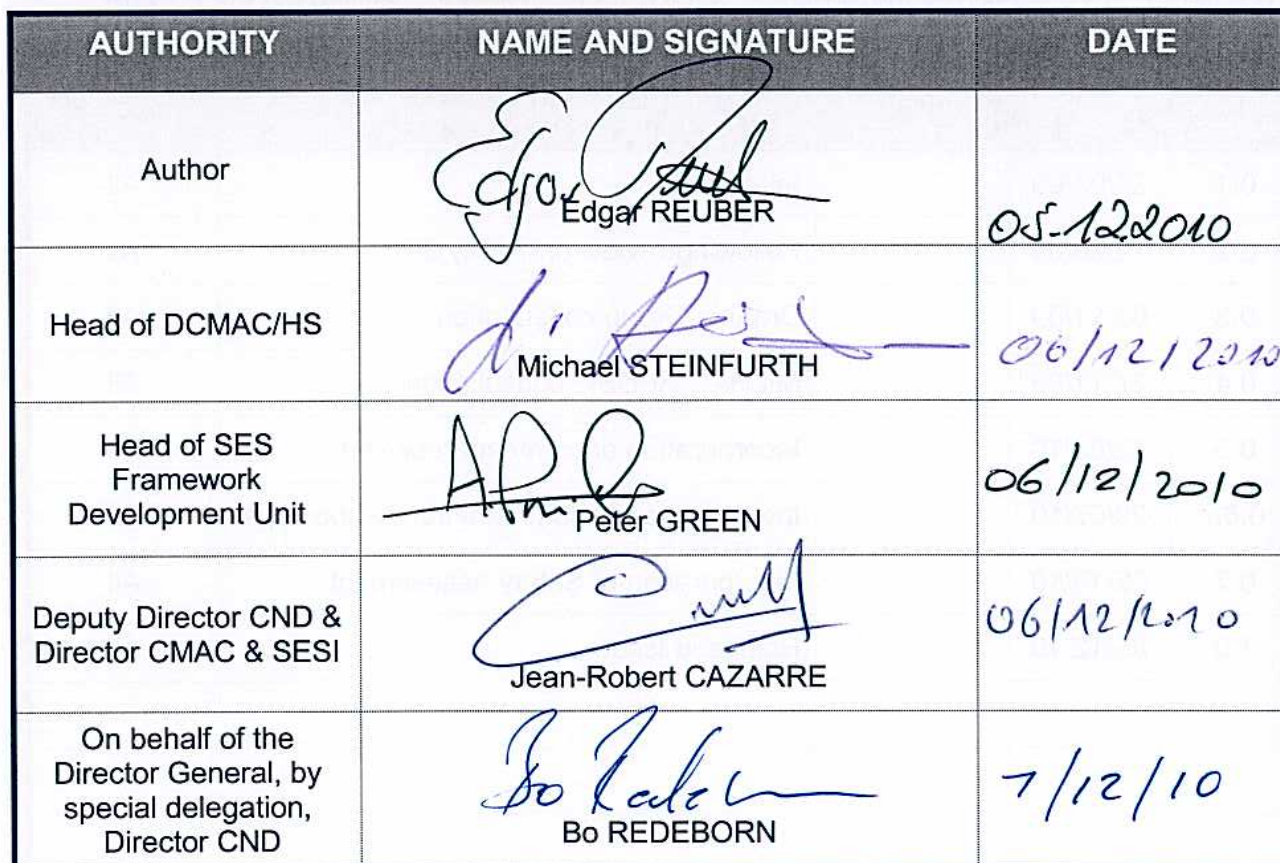 AUTHORITY NAME AND SIGNATURE DATE
Author
Edgar REUBER
05-12.2010
Head of DCMAC/HS
Michael STEINFURTH
06/12/2010
Head of SES
Framework
Development Unit
Peter GREEN
06/12/2010
Deputy Director CND &
Director CMAC & SESI
Jean-Robert CAZARRE
06/12/2010
On behalf of the
Director General, by
special delegation,
Director CND
Bo REDEBORN
7/12/10